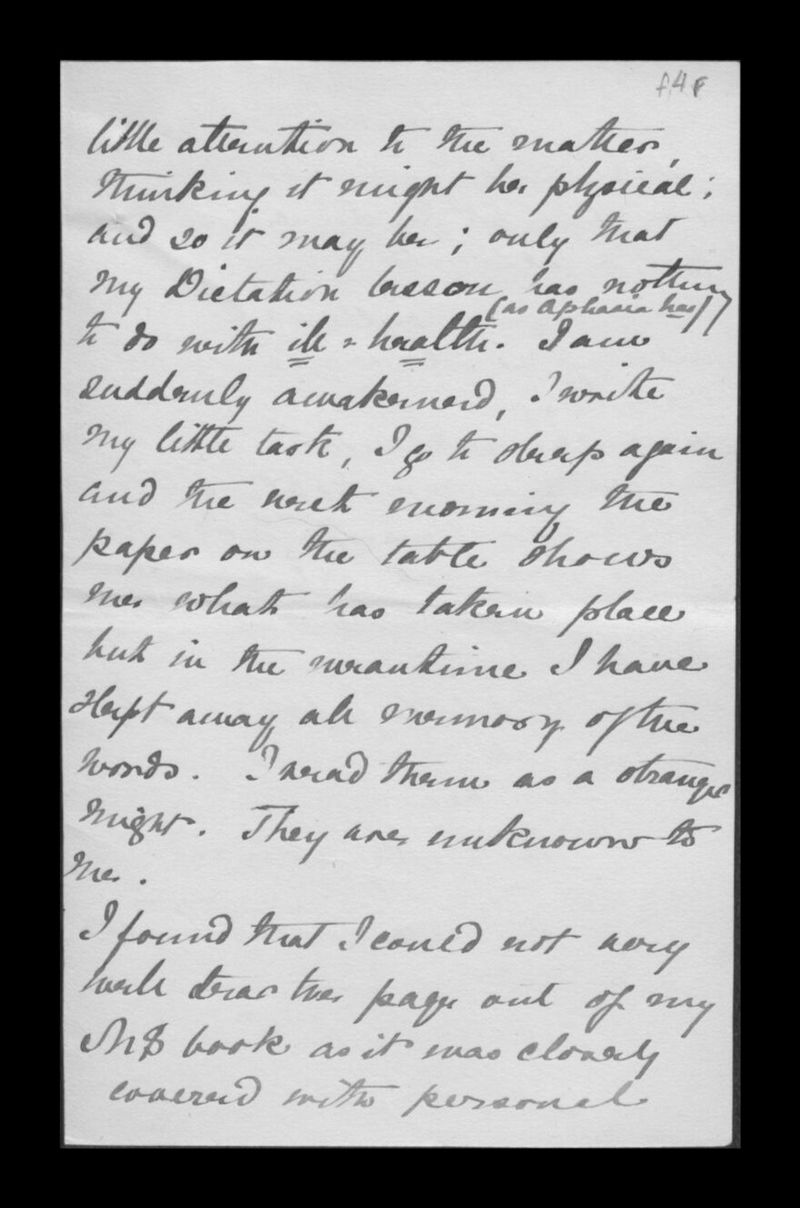 f.4r
little attention to the matter,
thinking it might be physical;
and so it may be; only that
my Dictation lesson has nothing
(as Aphasia has)
to do with ill-health. I am
suddenly awakened, I write
my little task, I go to sleep again
and the next morning the
paper on the table shows
me what has taken place
but in the meantime I have
slept away all memory of the
words. I read them as a stranger
might. They are unknown to
me.
I found that I could not very
well tear the page out of my
MS book as it was closely
covered with personal